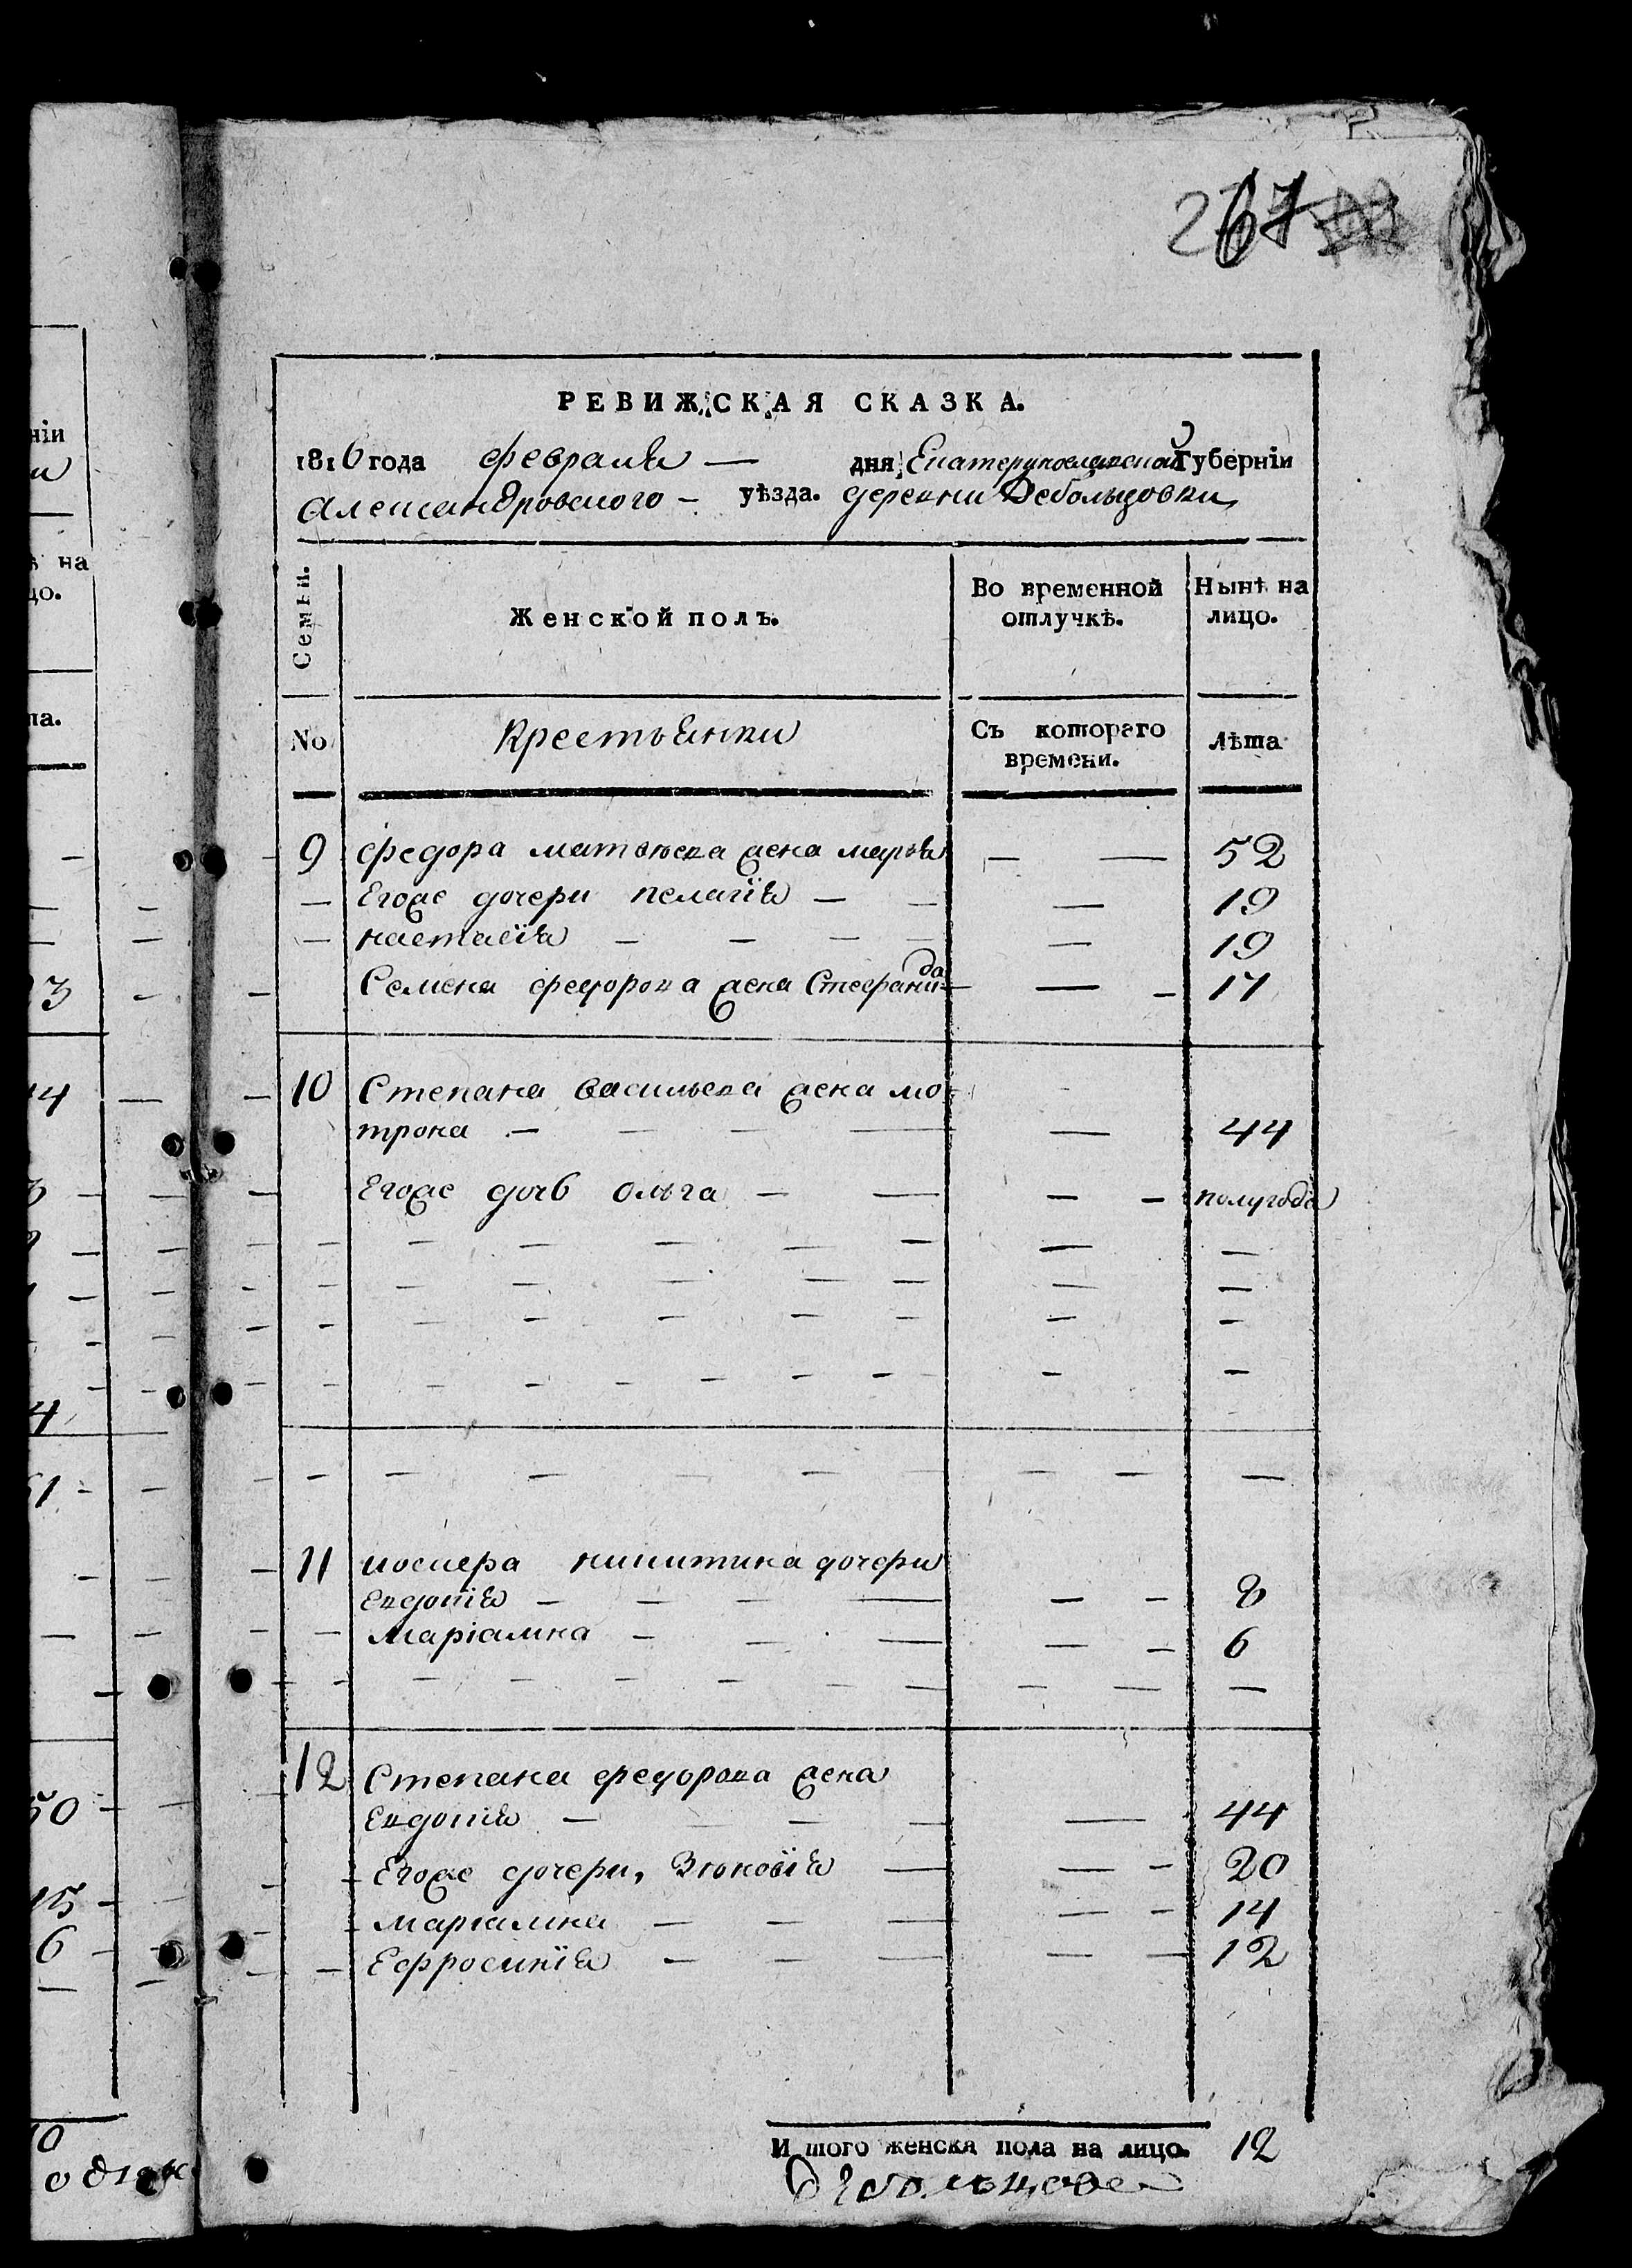 267
РЕВИЖСКАЯ СКАЗКА.
1816 года февраля — дня, Екатеринославской Губерніи
Александровского — уѣзда. деревни Дебольцовки
Семьи.
Женской полъ.
Во временной отлучкѣ.
Нынѣ на лицо.
No
Крестьянки
Съ котораго времени.
Лѣта
9 федора матвѣева жена марья — — 52
— Егоже дочери пелагія — — — 19
— настасія — — — — — 19
Семена федорова жена Стефанида — — 17
10 Степана васильева жена мо-
трона — — — — — 44
Егоже дочь ольга — — — — полугода
11 иосифа никитина дочери
Евдокія — — — — — — 8
— Маріамна — — — — — 6
12 Степана федорова жена
Евдокія — — — — — 44
Егоже дочери, Зѣновія — — — 20
маріамна — — — — — 14
— Ефросинія — — — — — 12
Итого женска пола на лицо. 12
23
14
4
50
15
6
ніи
на